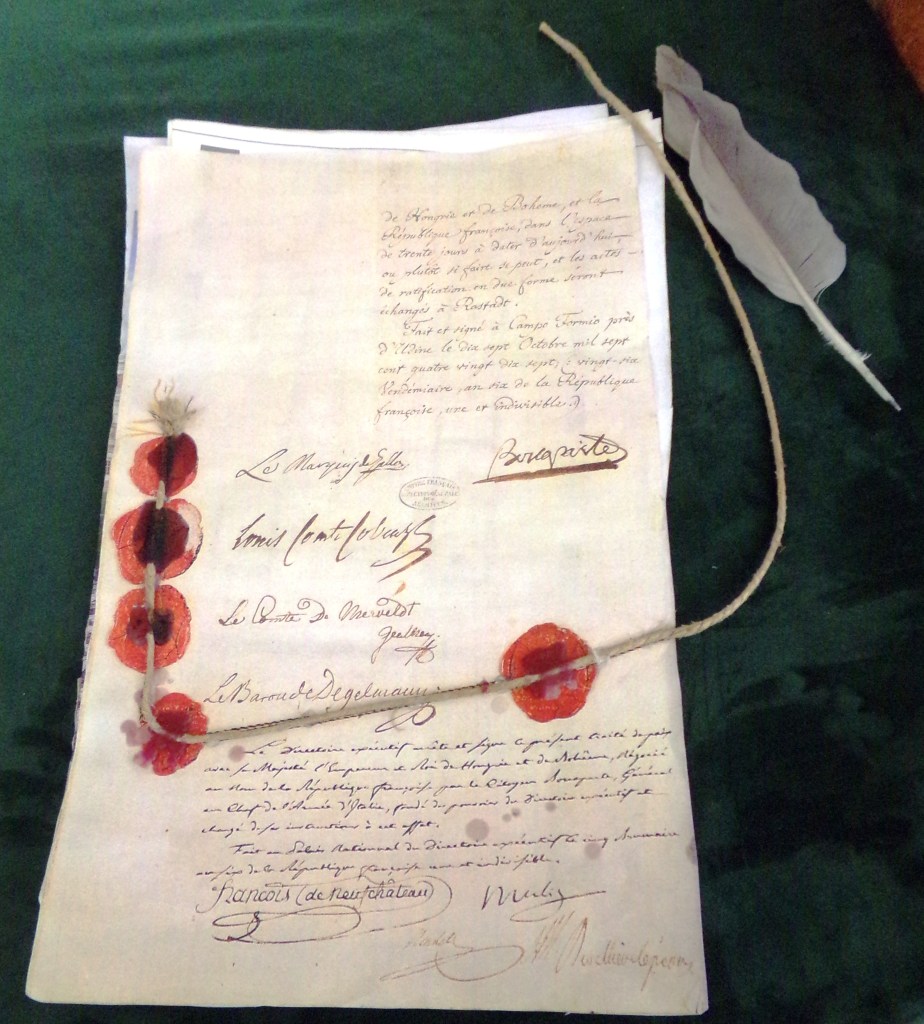 de Hongrie et de Bohome, et la
République françoise, dans l'espace
de trente jours à dater d'aujourd'hui,
ou plutôt si faire se peut, et les actes
de ratification en due forme seront
échangés à Rastadt.
Fait et signé à Campo Formio près
d'Udine le dix sept Octobre mil sept
cent quatre vingt dix sept; vingt-six
Vendémiaire, an six de la République
françoise, une et indivisible.
Le Marquis de Gallo
Bonaparte
Louis Comte Cobenzl
Le Comte De Merveldt
Le Baron de Degelmann
Le Directoire exécutif arrête et signe le présent traité de paix
avec sa Majesté l'Empereur et Roi de Hongrie et de Bohême, Négocié
au Nom de la République françoise par le Citoyen Bonaparte, Général
en Chef de l'Armée d'Italie, fondé de pouvoirs du Directoire exécutif et
chargé de ses instructions à cet effet.
Fait au Palais National du Directoire exécutif le cinq Brumaire
an six de la République françoise une et indivisible.
François (de Neufchâteau)
Merlin